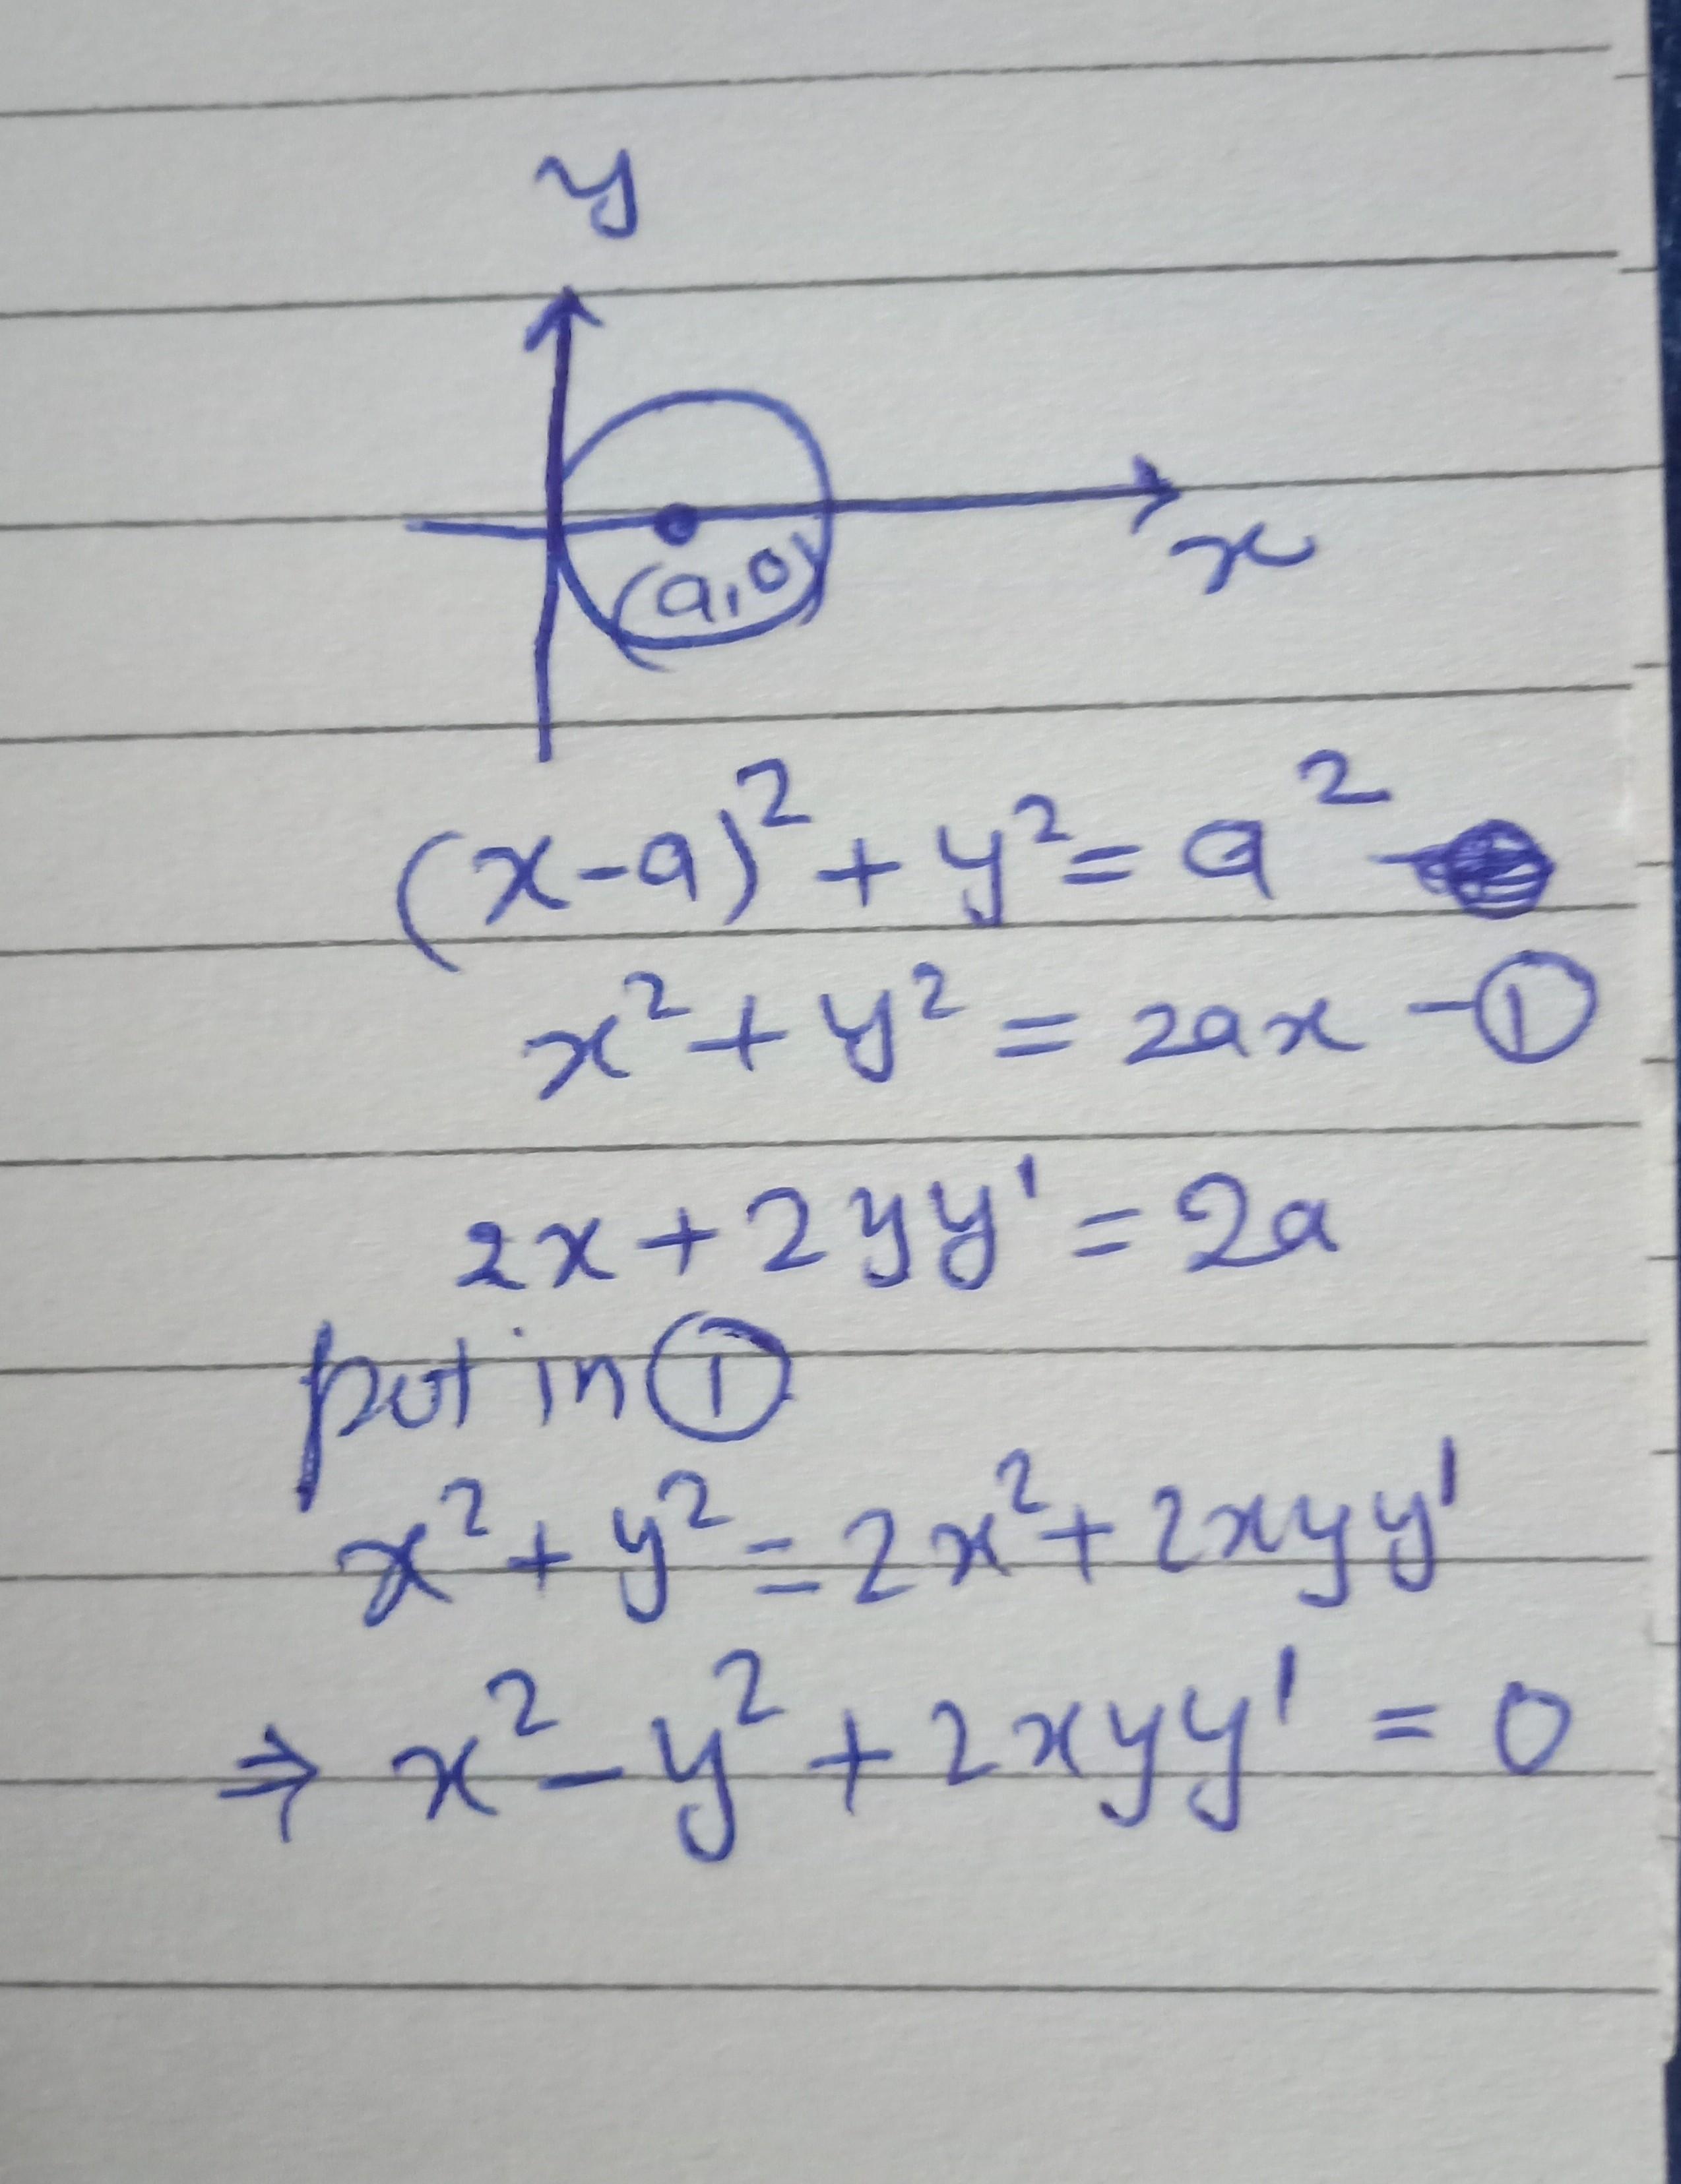 y
x
(a,0)
(x-a)²+y²=a²-
x²+y²=2ax -①
2x+2yy'=2a
put in ①
x²+y²=2x²+2xyy'
⇒ x²-y²+2xyy'=0